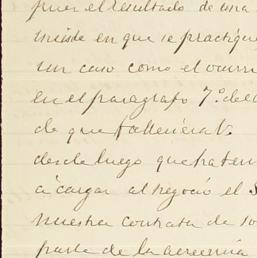 pues el resultado de una
en que se practique
un caso como el ocurri
en el paragrafo 7º. del
de que falleciera V.
desde luego que haten
a cargar al negocio el S
nuestra contrata de so
parte de la acreencia